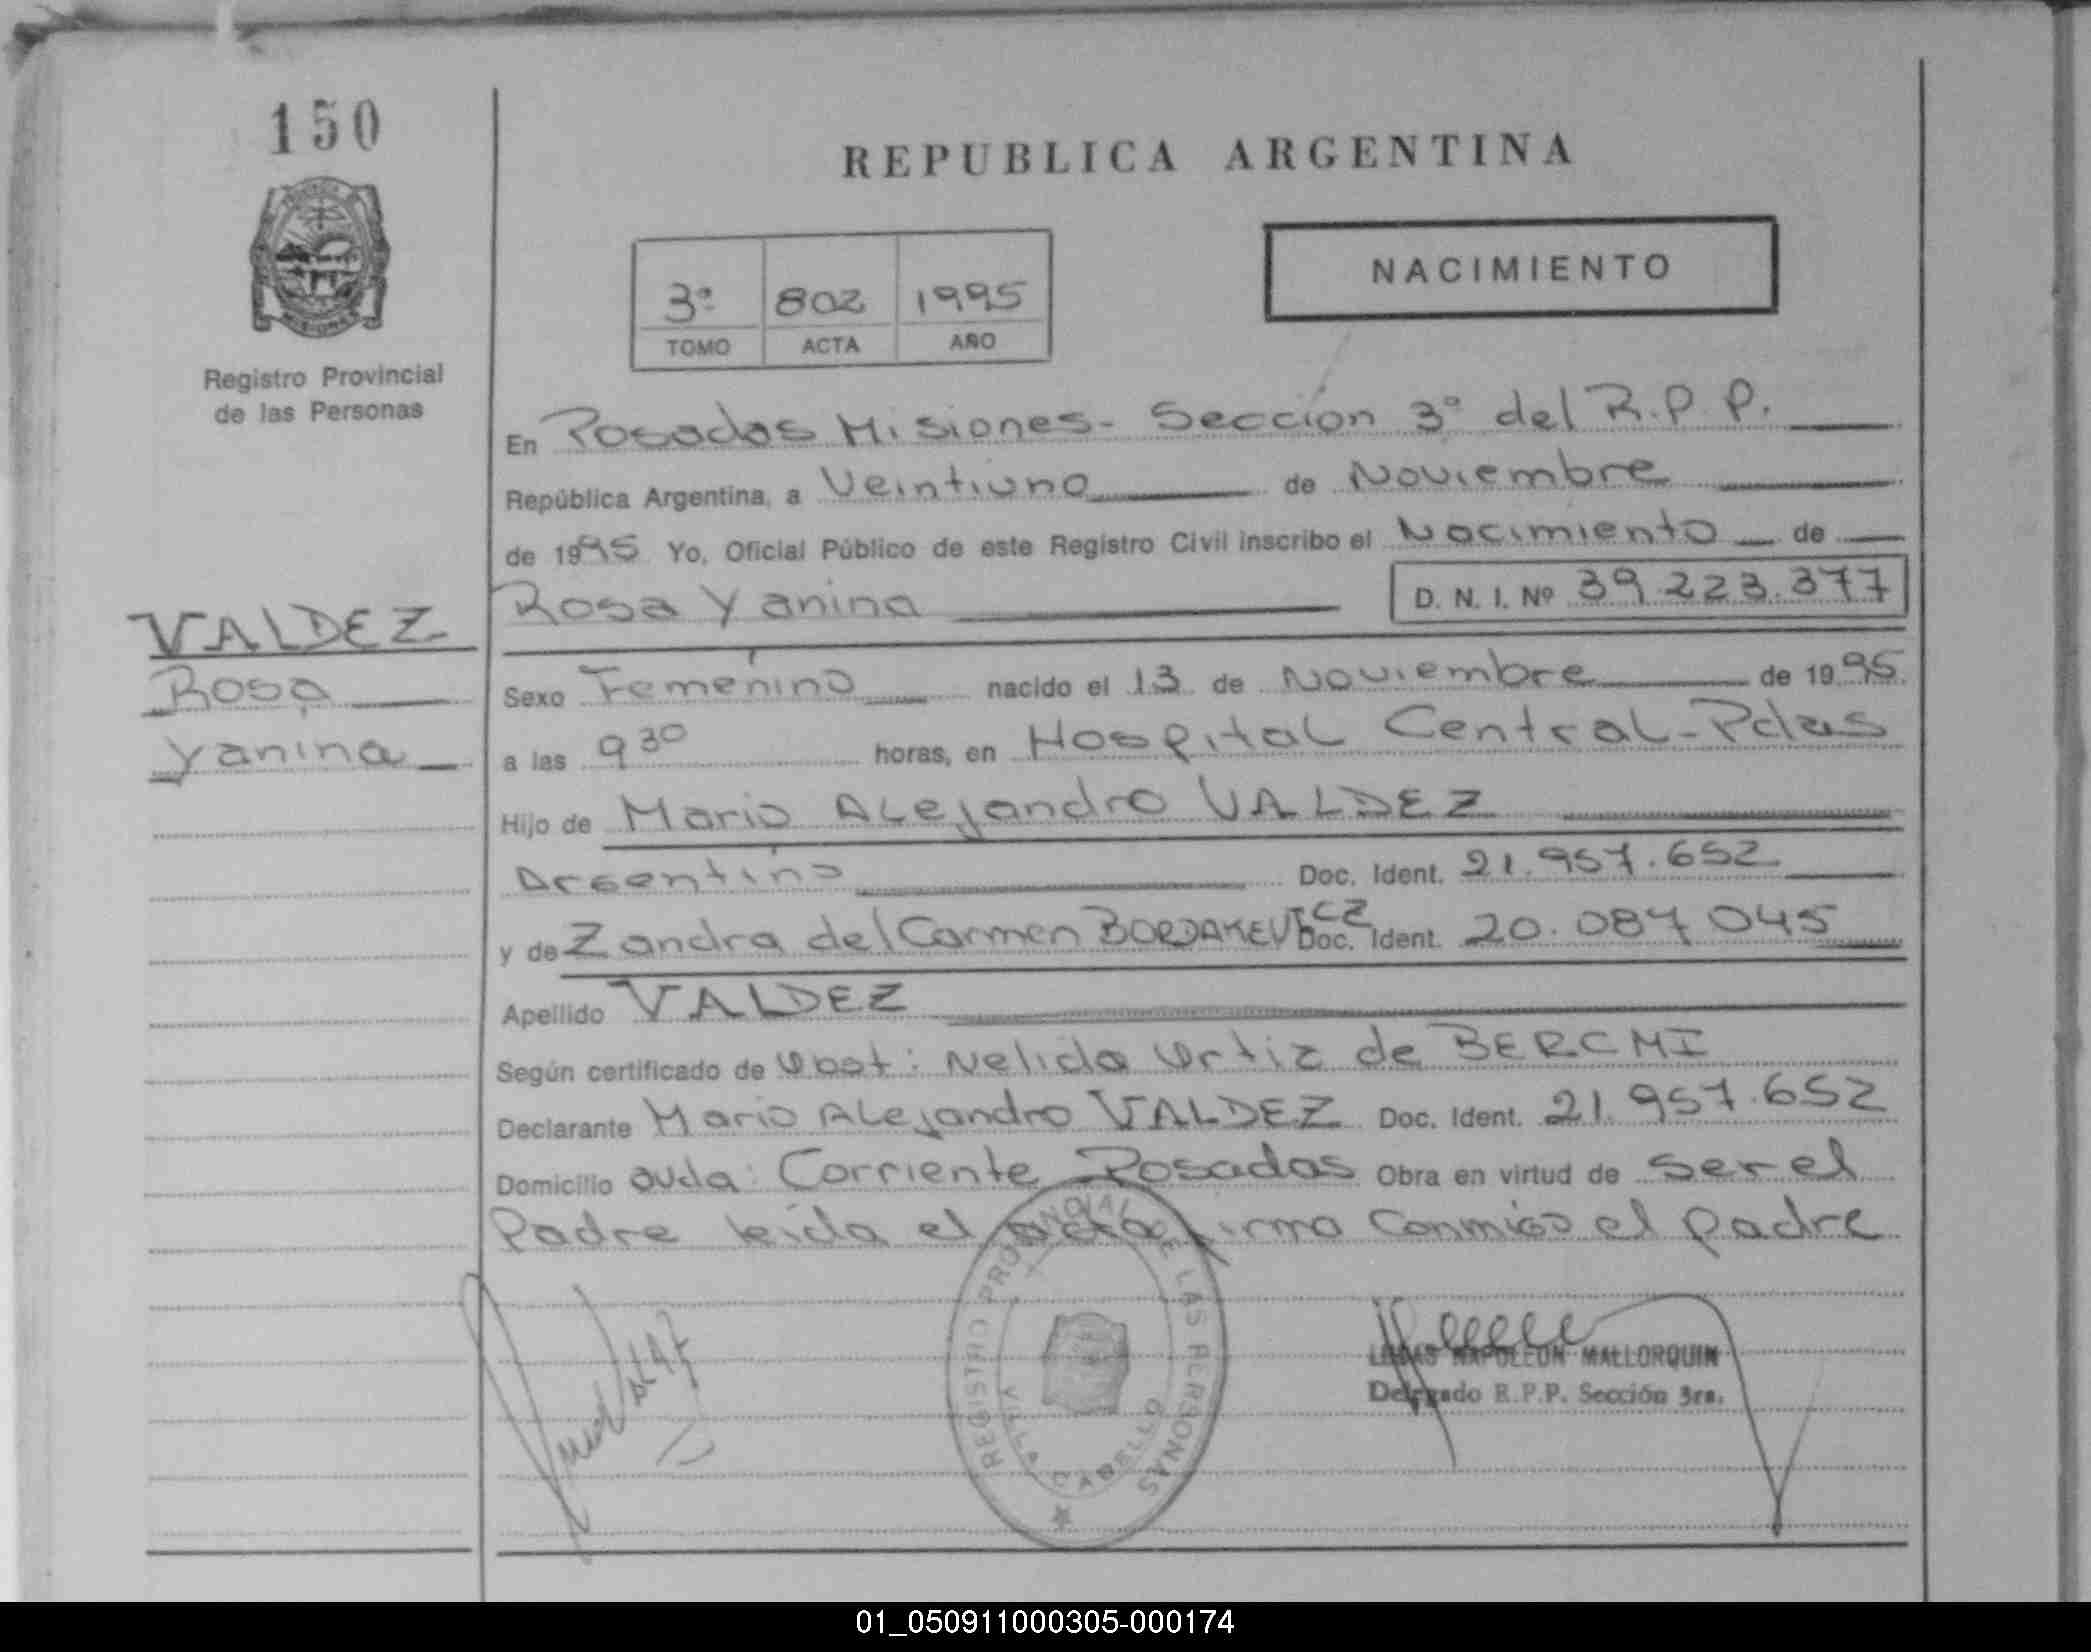 150
REPUBLICA ARGENTINA
NACIMIENTO
3º 802 1995
TOMO ACTA AÑO
MISIONES
Registro Provincial
de las Personas
En Posadas Misiones - Sección 3º del R.P.P.
República Argentina, a Veintiuno de Noviembre
de 1995 Yo, Oficial Público de este Registro Civil inscribo el Nacimiento de
Rosa Yanina D. N. I. Nº 39.223.377
VALDEZ
Rosa
Yanina
Sexo Femenino nacido el 13 de Noviembre de 1995
a las 9 30 horas, en Hospital Central - Pdas
Hijo de Mario Alejandro VALDEZ
Argentino Doc. Ident. 21.957.652
y de Zandra del Carmen BORDAKEVICZ Doc. Ident. 20.087 045
Apellido VALDEZ
Según certificado de Obst: Nelida Ortiz de
Declarante Mario Alejandro VALDEZ Doc. Ident. 21.957.652
Domicilio avda: Corriente Posadas Obra en virtud de ser el
Padre leida el acta firma conmigo el padre
REGISTRO PROVINCIAL DE LAS PERSONAS
VILLA CABELLO
LUCAS NAPOLEON MALLORQUIN
Delegado R.P.P. Sección 3ra.
01_050911000305-000174